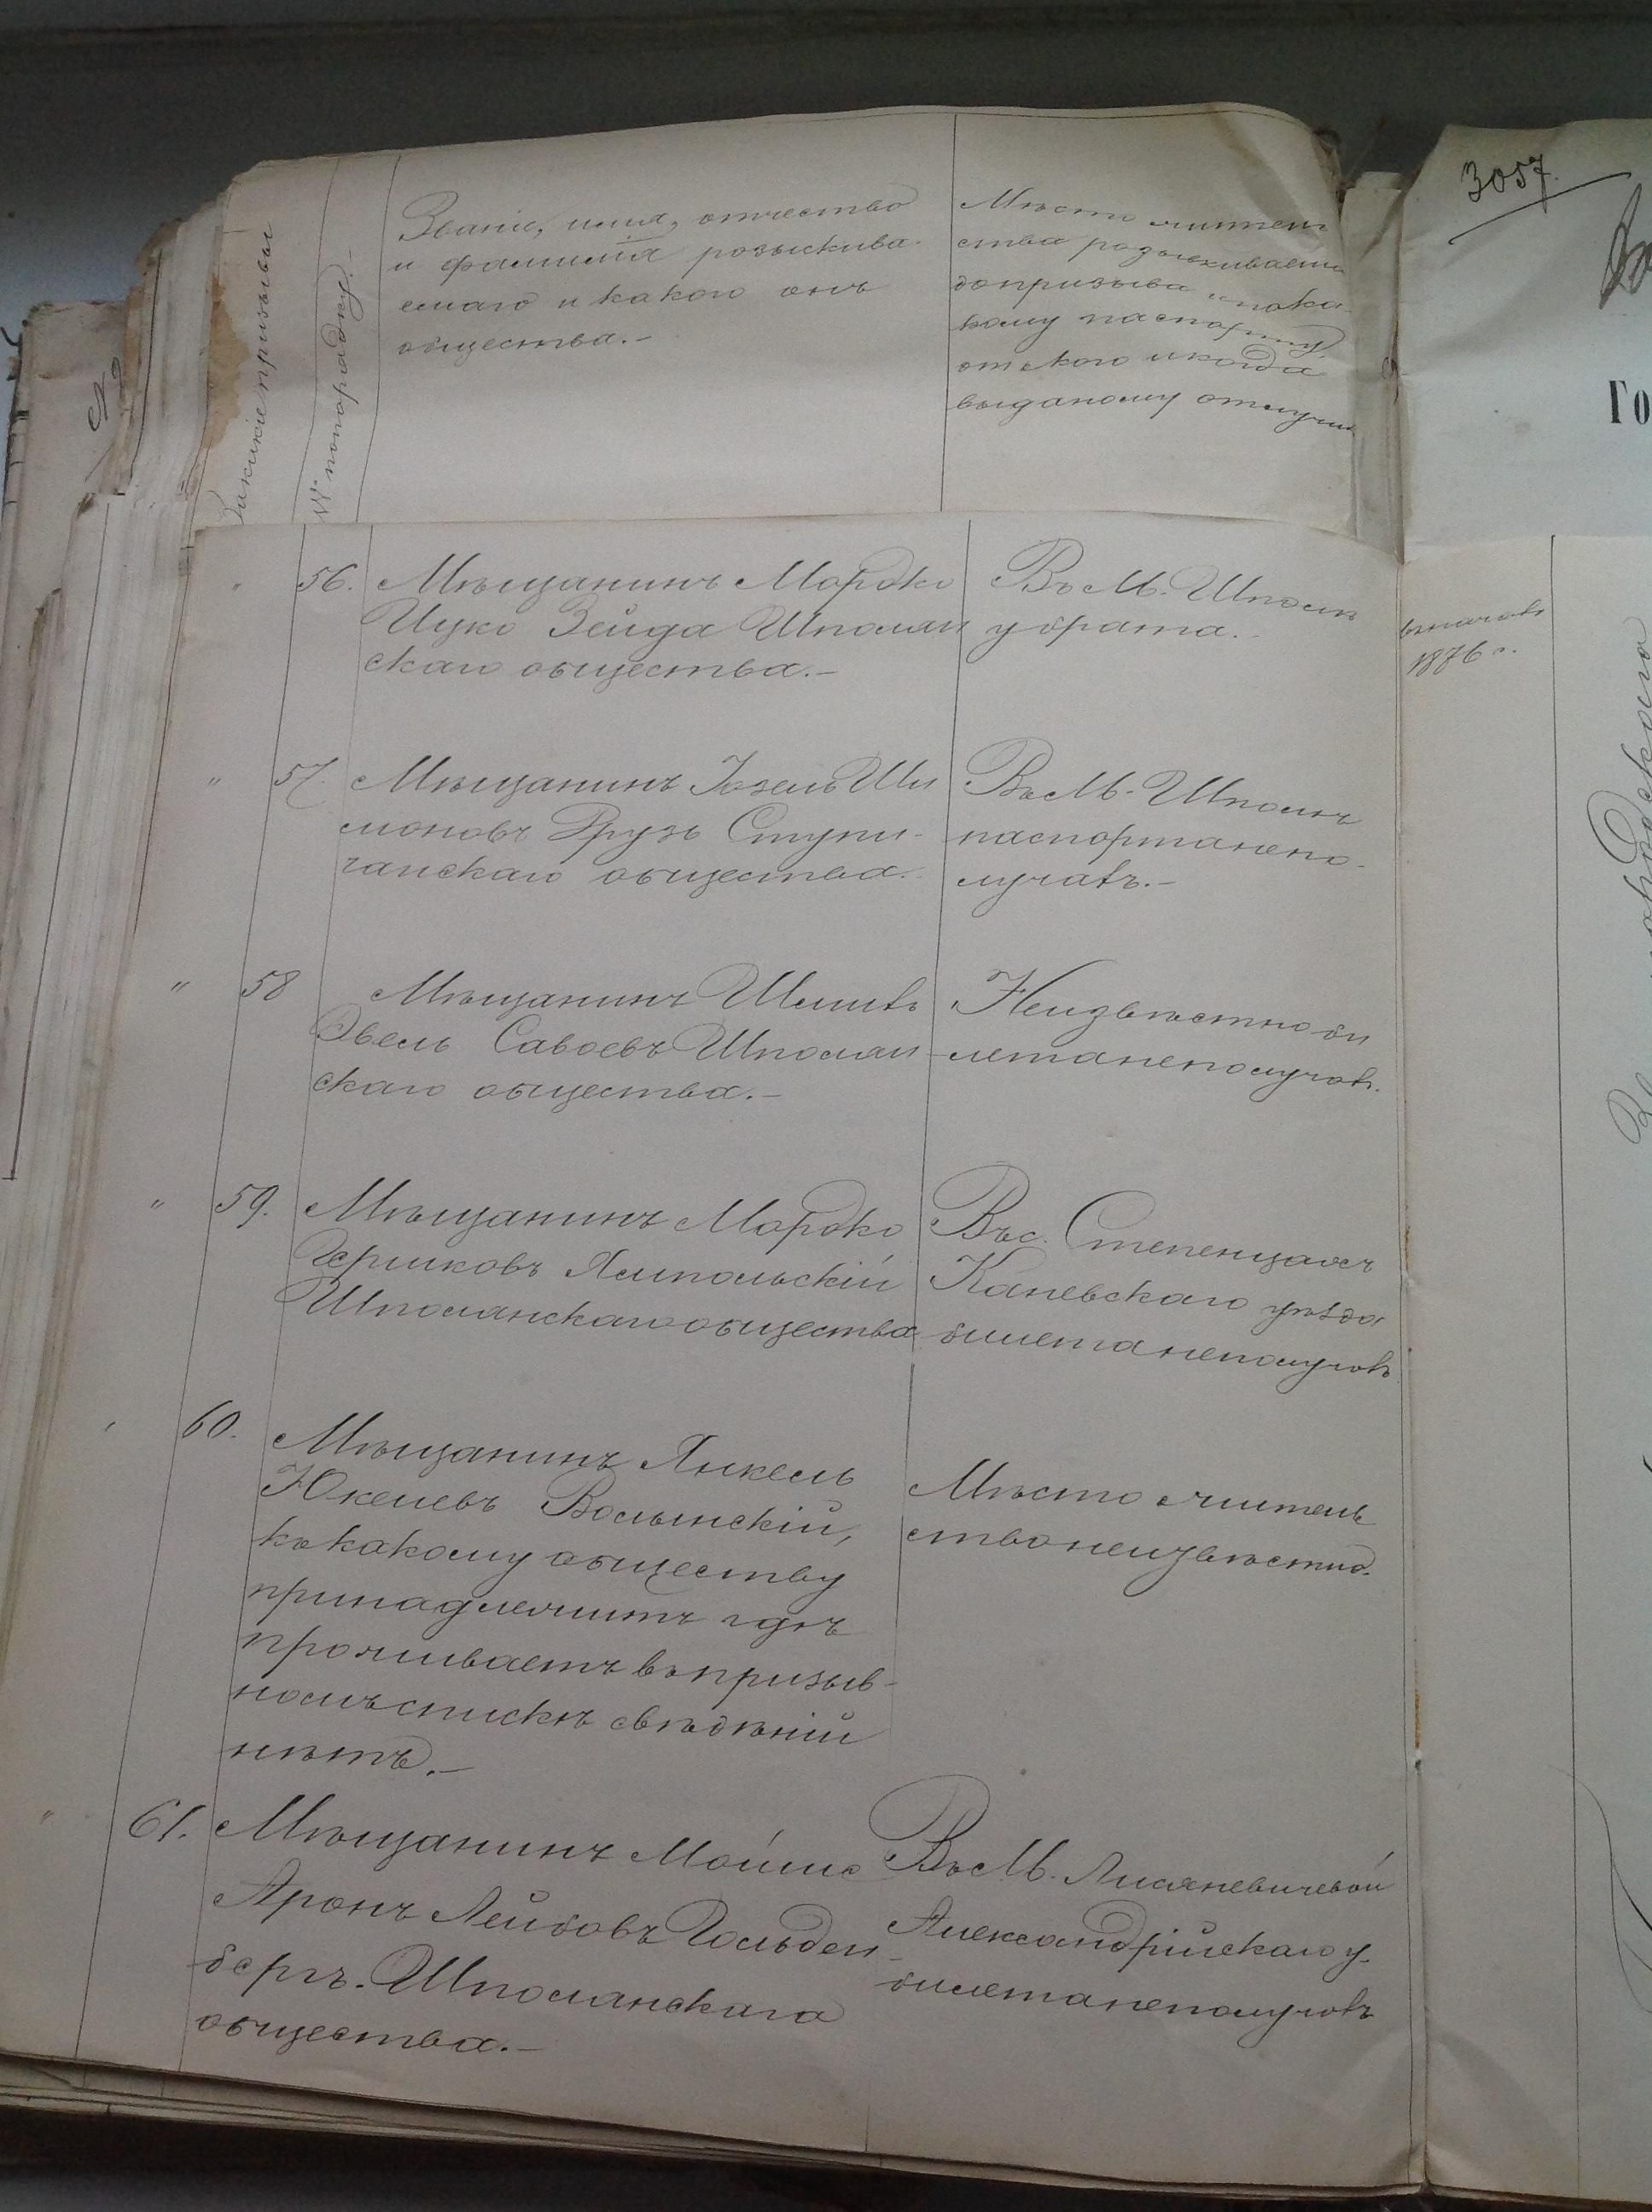 3057.
Званіе, имя, отчество
и фамилія розыскива-
емаго и какого онъ
общества.-
Мѣсто жител
ства розыскиваем
до призыва и по ка-
кому паспорту
от кого и когда
выданому отлучил
№ по порядку.
призывы
Го
56. Мѣщанинъ Мордко
Ицко Зейда Шполян
скаго общества.-
Въ М. Шполѣ
у брата.
1876 г.
" 57. Мѣщанинъ Іозель Ши
моновъ Грузъ Ступи-
чанскаго общества.
Въ М. Шполѣ
паспорта не по-
лучалъ.-
" 58 Мѣщанинъ
Эвель Савоевъ Шполян
скаго общества.-
Неизвѣстно би
лета не получалъ.
" 59. Мѣщанинъ Мордко
Гершковъ Ямпольскій
Шполянскаго общества
Въ с. Степенцахъ
Каневскаго уѣзда
билета не получалъ
60. Мѣщанинъ Янкель
Юкелевъ Волынскій,
къ какому обществу
принадлежитъ гдѣ
проживаетъ въ призыв-
номъ спискѣ свѣдѣній
нѣтъ.-
Мѣсто житель
ство неизвѣстно.
" 61. Мѣщанинъ Мойше
Аронъ Лейбовъ Гольден
бергъ. Шполянскаго
общества.-
Въ М.
Александрійскаго у.
билета не получалъ